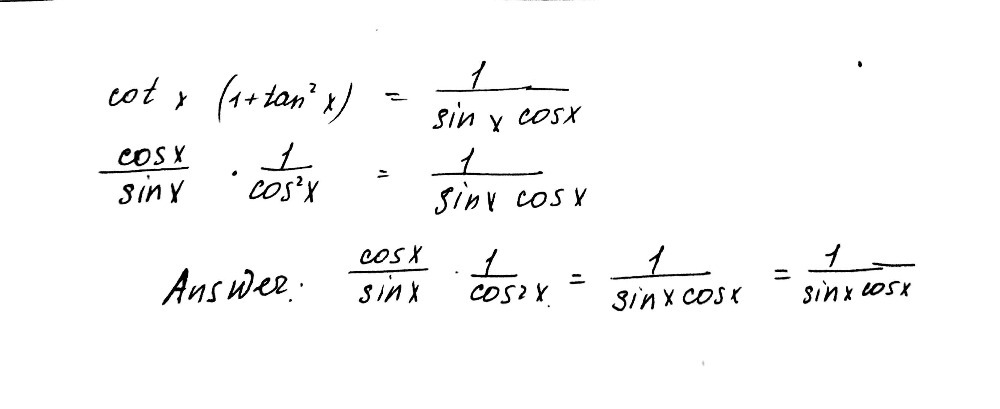 cot x (1+tan² x) = 1/(sin x cosx)
cosx/sinx · 1/cos²x = 1/(sinx cosx)
Answer: cosx/sinx · 1/cos2x = 1/(sinx cosx) = 1/(sinx cosx)